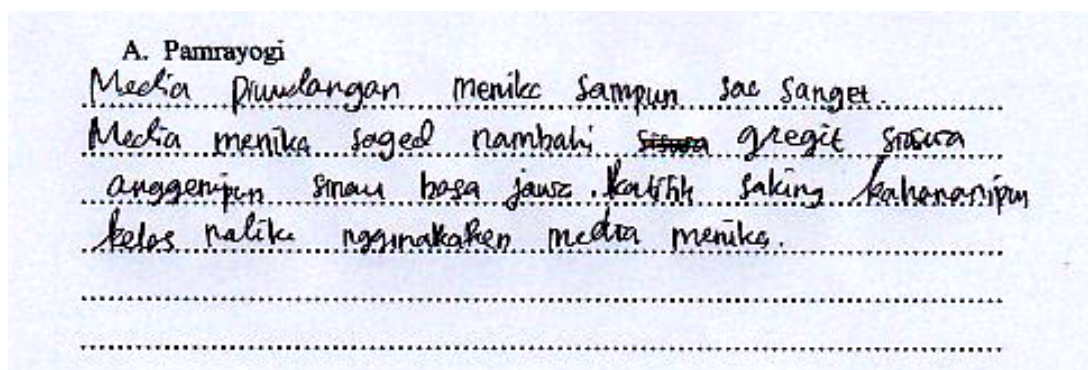 A. Pamrayogi
Media Piwulangan menika sampun sae sanget.
Media menika saged nambahi gregit siswa
anggenipun sinau basa jawa. Katitik saking kahananipun
kelas nalika ngginakaken media menika.